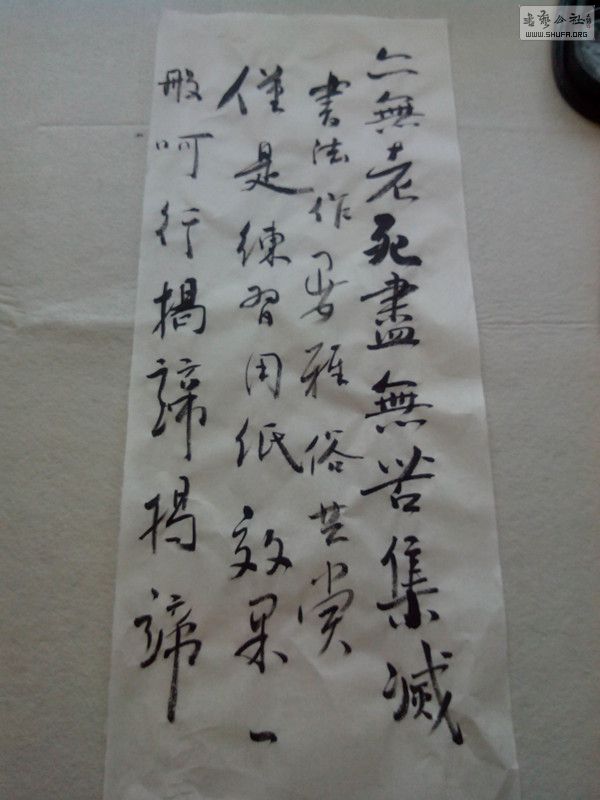 亦無老死盡無苦集滅
書法作品雅俗共赏
僅是練習用纸效果一
般呵行揭諦揭諦
书艺公社
WWW.SHUFA.ORG